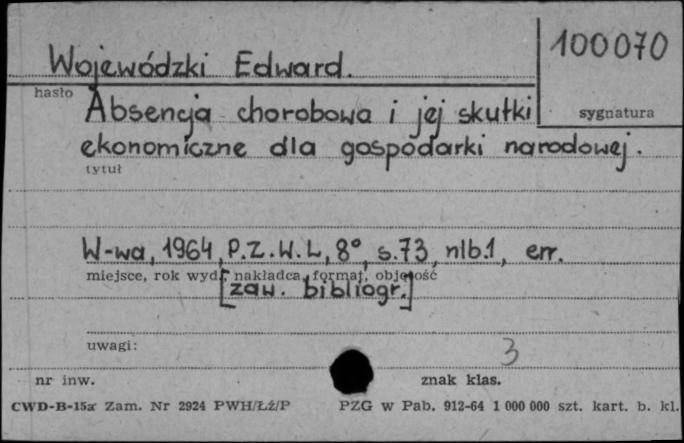 Wojewódzki Edward.
100070
hasło
sygnatura
Absencja chorobowa i jej skutki
ekonomiczne dla gospodarki narodowej.
tytuł
W-wa, 1964, P.Z.W.L, 8°, s.73, nlb.1, err.
miejsce, rok wyd., nakładca, format, objętość
[zaw. bibliogr.]
uwagi:
3
nr inw.
znak klas.
CWD-B-15a Zam. Nr 2924 PWH/Łź/P PZG w Pab. 912-64 1 000 000 szt. kart. b. kl.